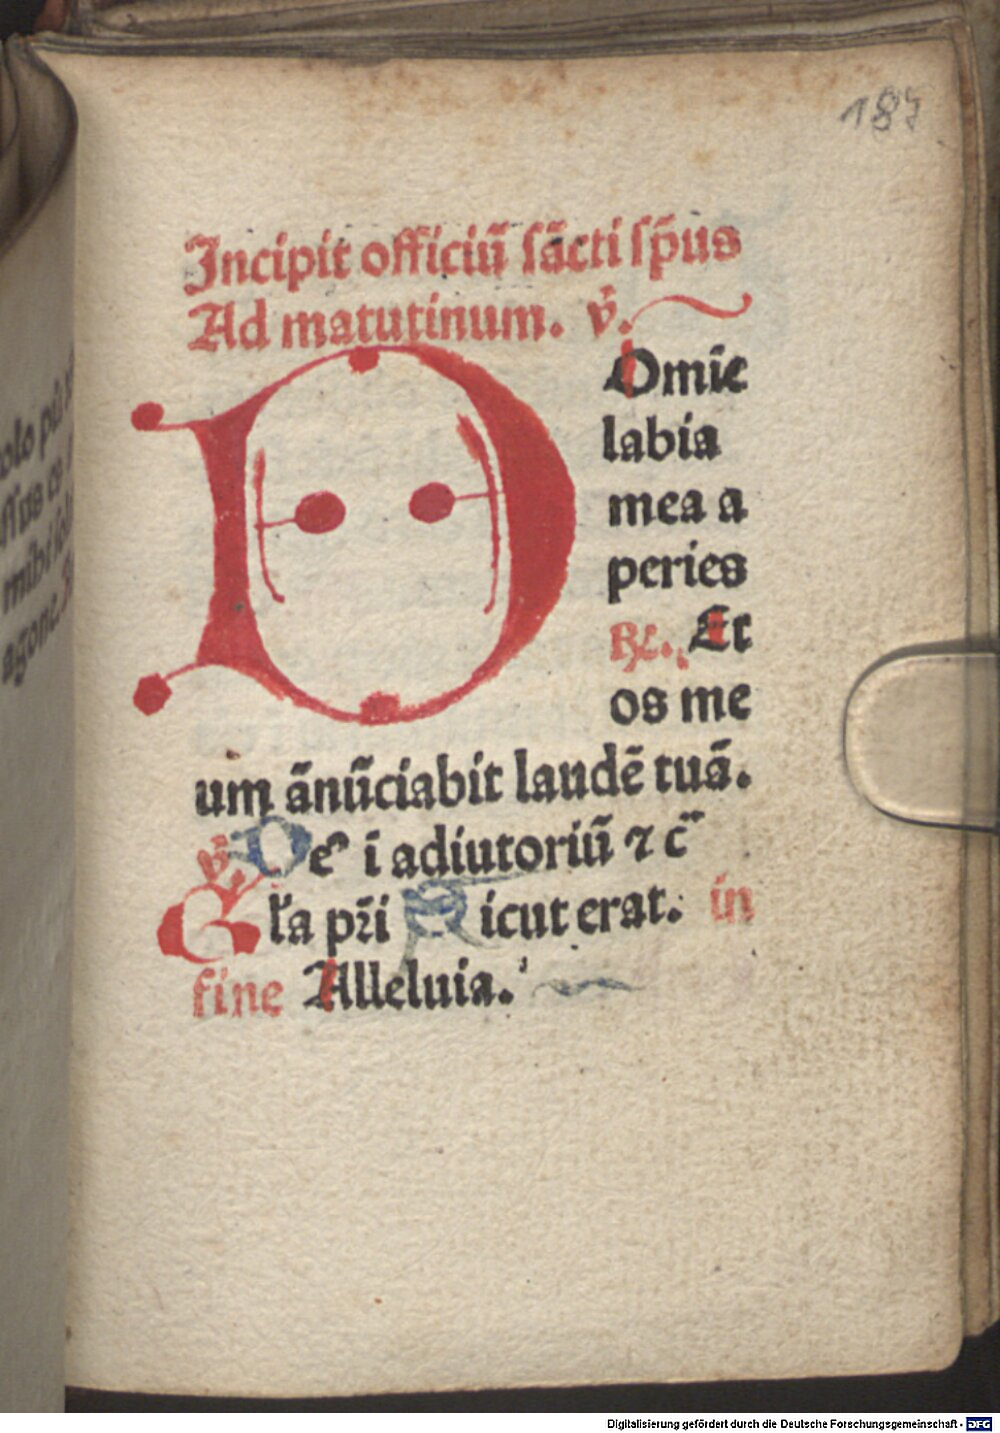 187
Incipit officiū sācti sp̄us
Ad matutinum. v̄.
D Omīe
labia
mea a
peries
R̄. Et
os me
um ānūciabit laudē tuā.
v̄. De⁹ ī adiutoriū ⁊ c̄
Gl'a pr̄i Sicut erat. in
fine Alleluia.
olo
us
mihi
agone
Digitalisierung gefördert durch die Deutsche Forschungsgemeinschaft - DFG